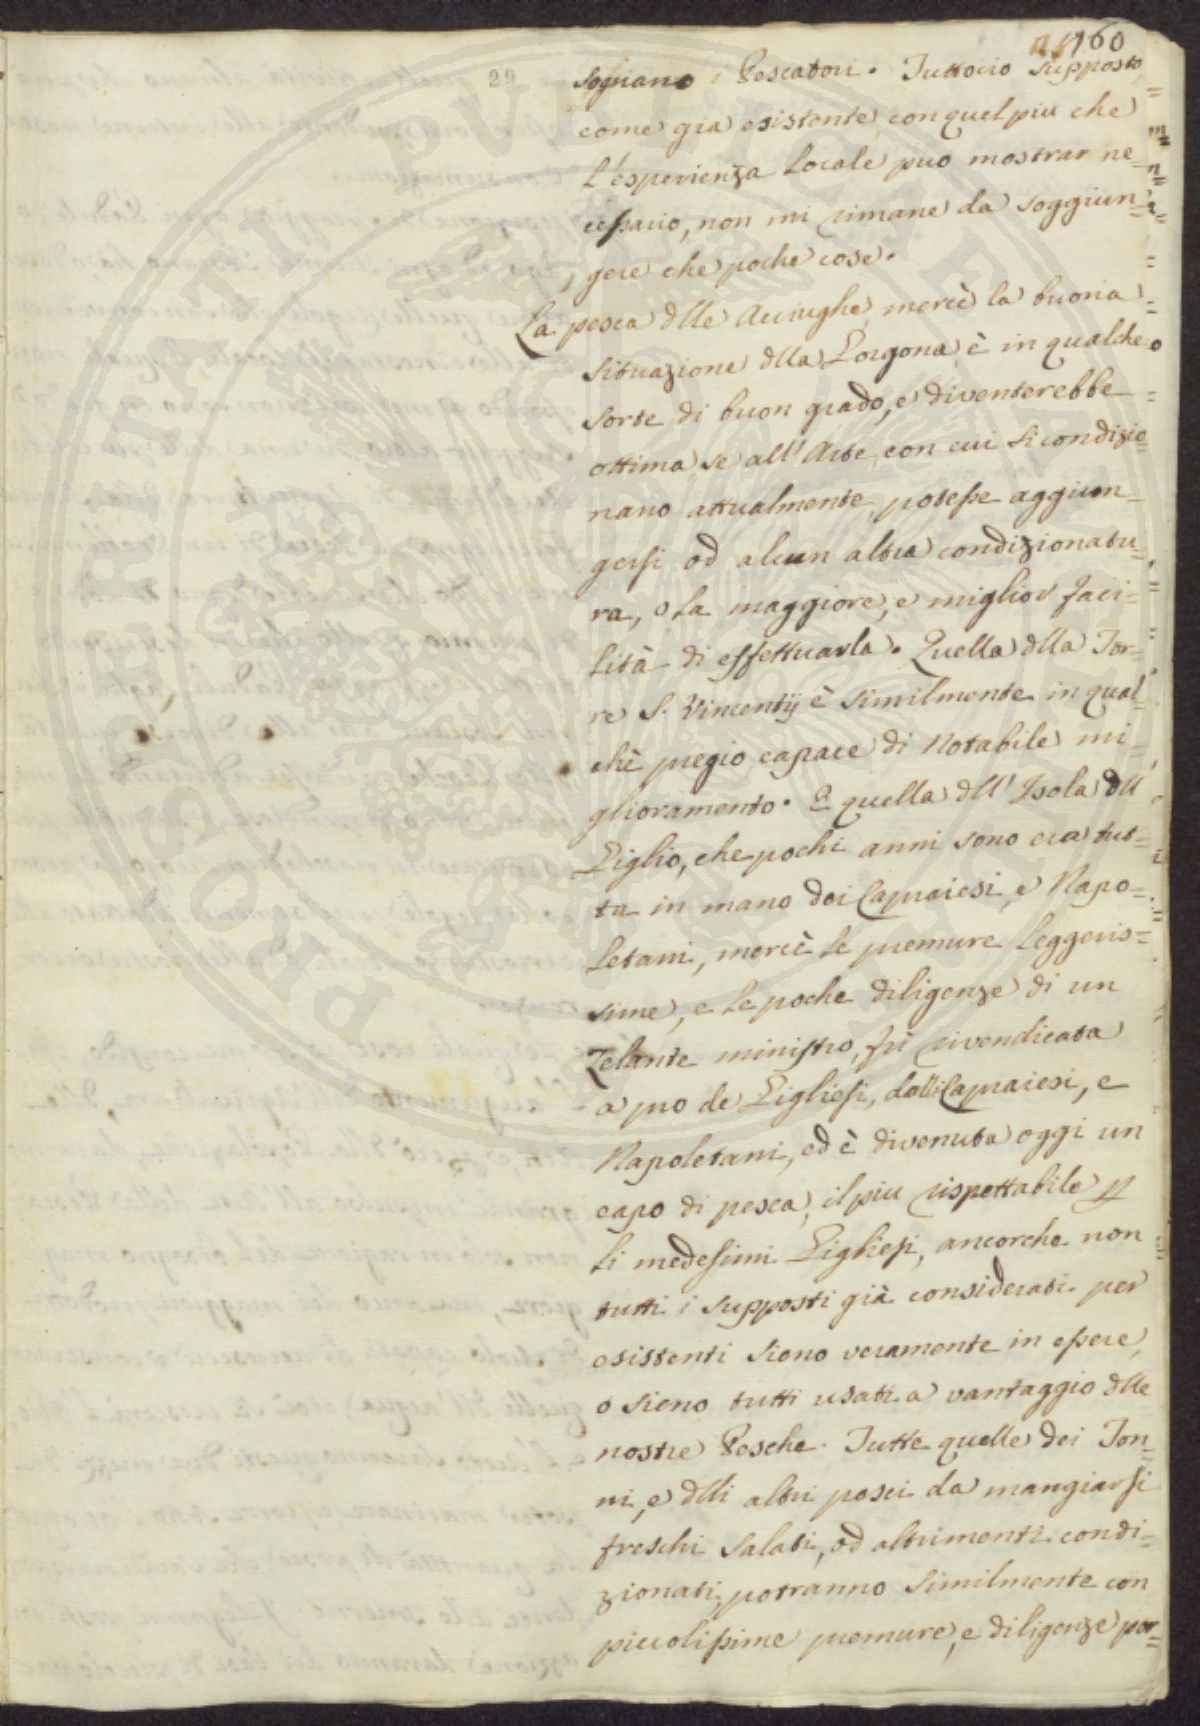 160
29
sogniano i Pescatori. Tuttocio supposto
come già esistente, con quel piu che
l'esperienza Locale puo mostrar ne-
cessario, non mi rimane da soggiun-
gere che poche cose.
La pesca dlle Acciughe, mercè la buona
situazione dlla Gorgona, è in qualche
sorte di buon grado, e diventerebbe
ottima, se all'Arte, con cui si condizio-
nano attualmente, potesse aggiun-
gersi od alcun altra condizionatu-
ra, o la maggiore, e miglior faci-
lità di effettuarla. Quella dlla Tor-
re S. Vincentij è similmente in qual-
chè pregio capace di Notabile mi-
glioramento. E quella dll'Isola dll
Giglio, che pochi anni sono era tut-
ta in mano dei Capraiesi, e Napo-
letani, mercè le premure leggeris-
sime, e le poche diligenze di un
Zelante ministro, fù rivendicata
a pro de Gigliesi, dalli Capraiesi, e
Napoletani, ed è divenuta oggi un
capo di pesca, il piu rispettabile p
li medesimi Gigliesi, ancorche non
tutti i supposti già considerati per
esistenti sieno veramente in essere,
o sieno tutti usati a vantaggio dlle
nostre Pesche. Tutte quelle dei Ton-
ni, e dlli altri pesci da mangiarsi
freschi salati, od altrimenti condi-
zionati, potranno similmente con
piccolissime premure, e diligenze por-